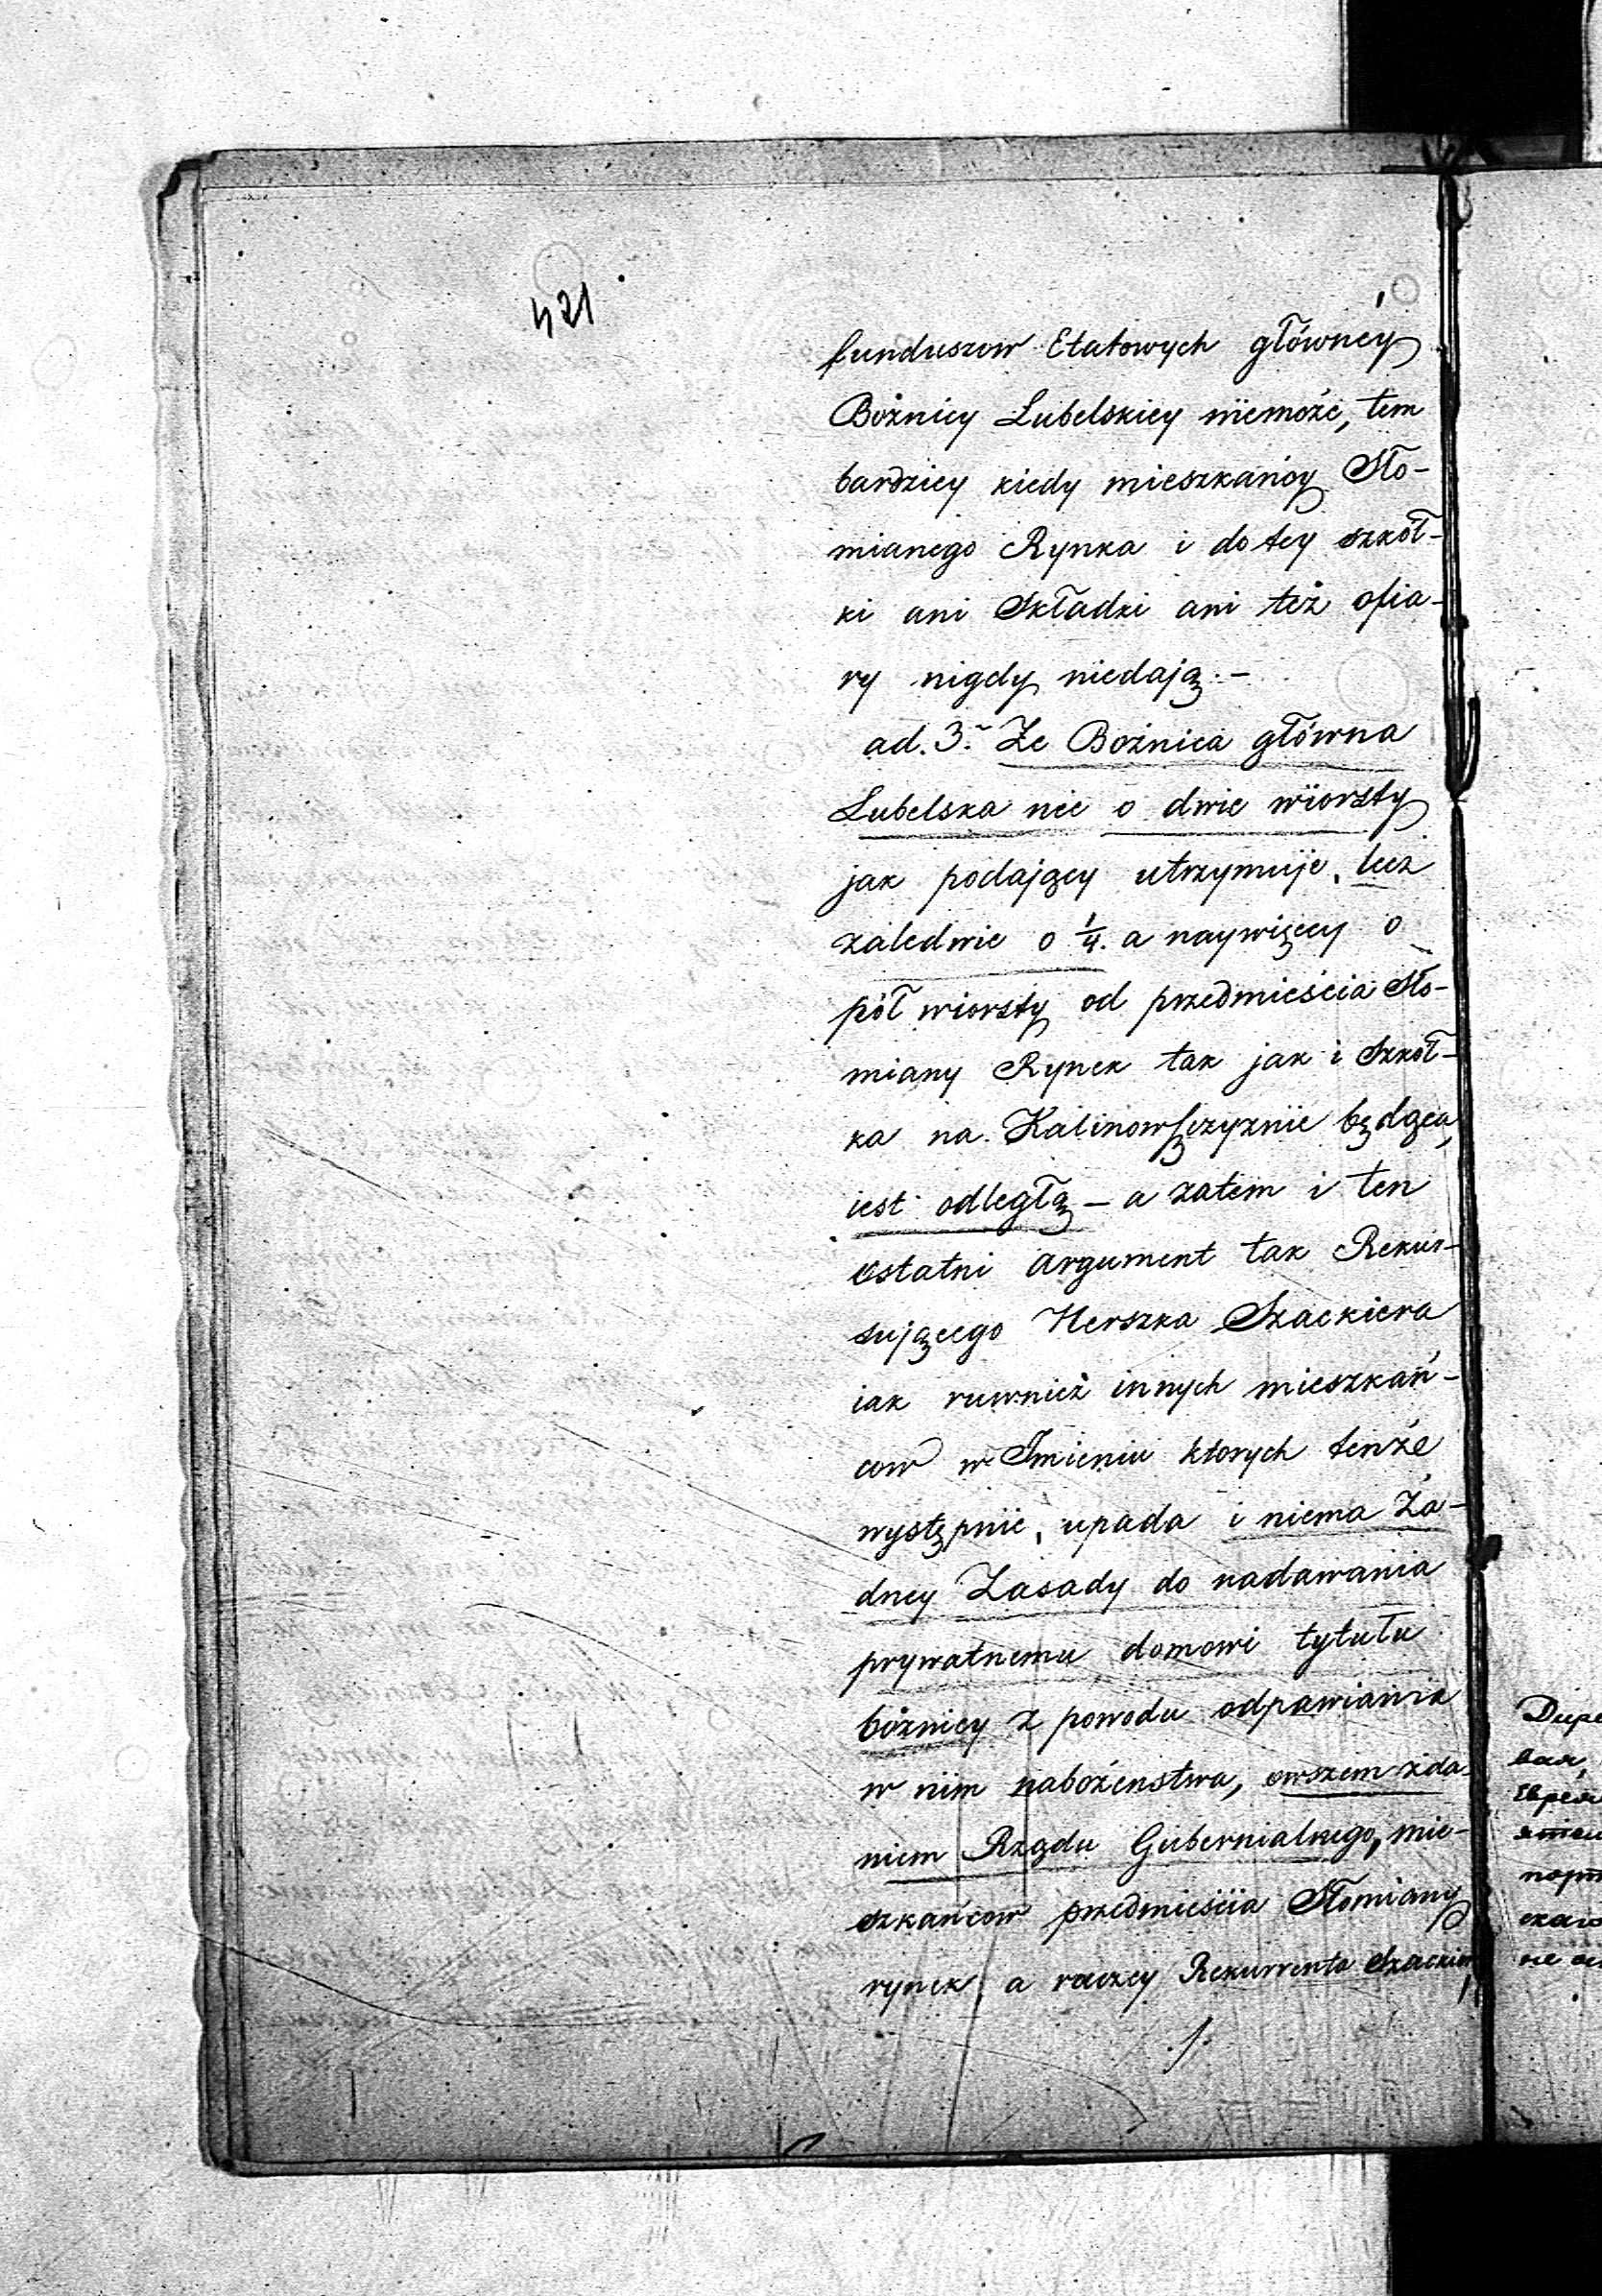 421
funduszow Etatowych główney
Bożnicy Lubelskiey niemoże, tem
bardziey kiedy mieszkańcy Sło-
mianego Rynka i do tey szkoł-
ki ani Składki ani też ofia-
ry nigdy niedają. -
ad. 3. Ze Bożnica główna
Lubelska nie o dwie wiorsty
jak podający utrzymuje, lecz
zaledwie o 1/4. a naywięcey o
pół wiorsty od przedmieścia Sło-
miany Rynek tak jak i Szkoł-
ka na Kalinowszczyznie będąca,
iest odległą - a zatem i ten
ostatni argument tak Rekur-
sującego Herszka Szackiera
iak ruwnież innych mieszkań-
cow w Imieniu ktorych tenże
występuie, upada i niema Ża-
dney Zasady do nadawania
prywatnemu domowi tytułu
bożnicy z powodu odpawiania
w nim nabożenstwa, owszem zda-
niem Rządu Gubernialnego, mie-
szkańcow przedmieścia Słomiany
rynek, a raczey Rekurrenta
./.